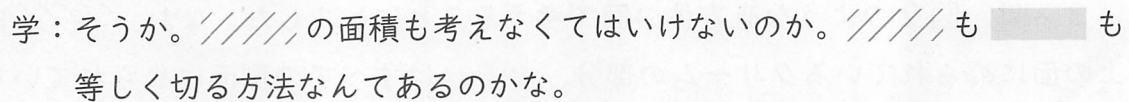 学：そうか。の面積も考えなくてはいけないのか。もも
等しく切る方法なんてあるのかな。